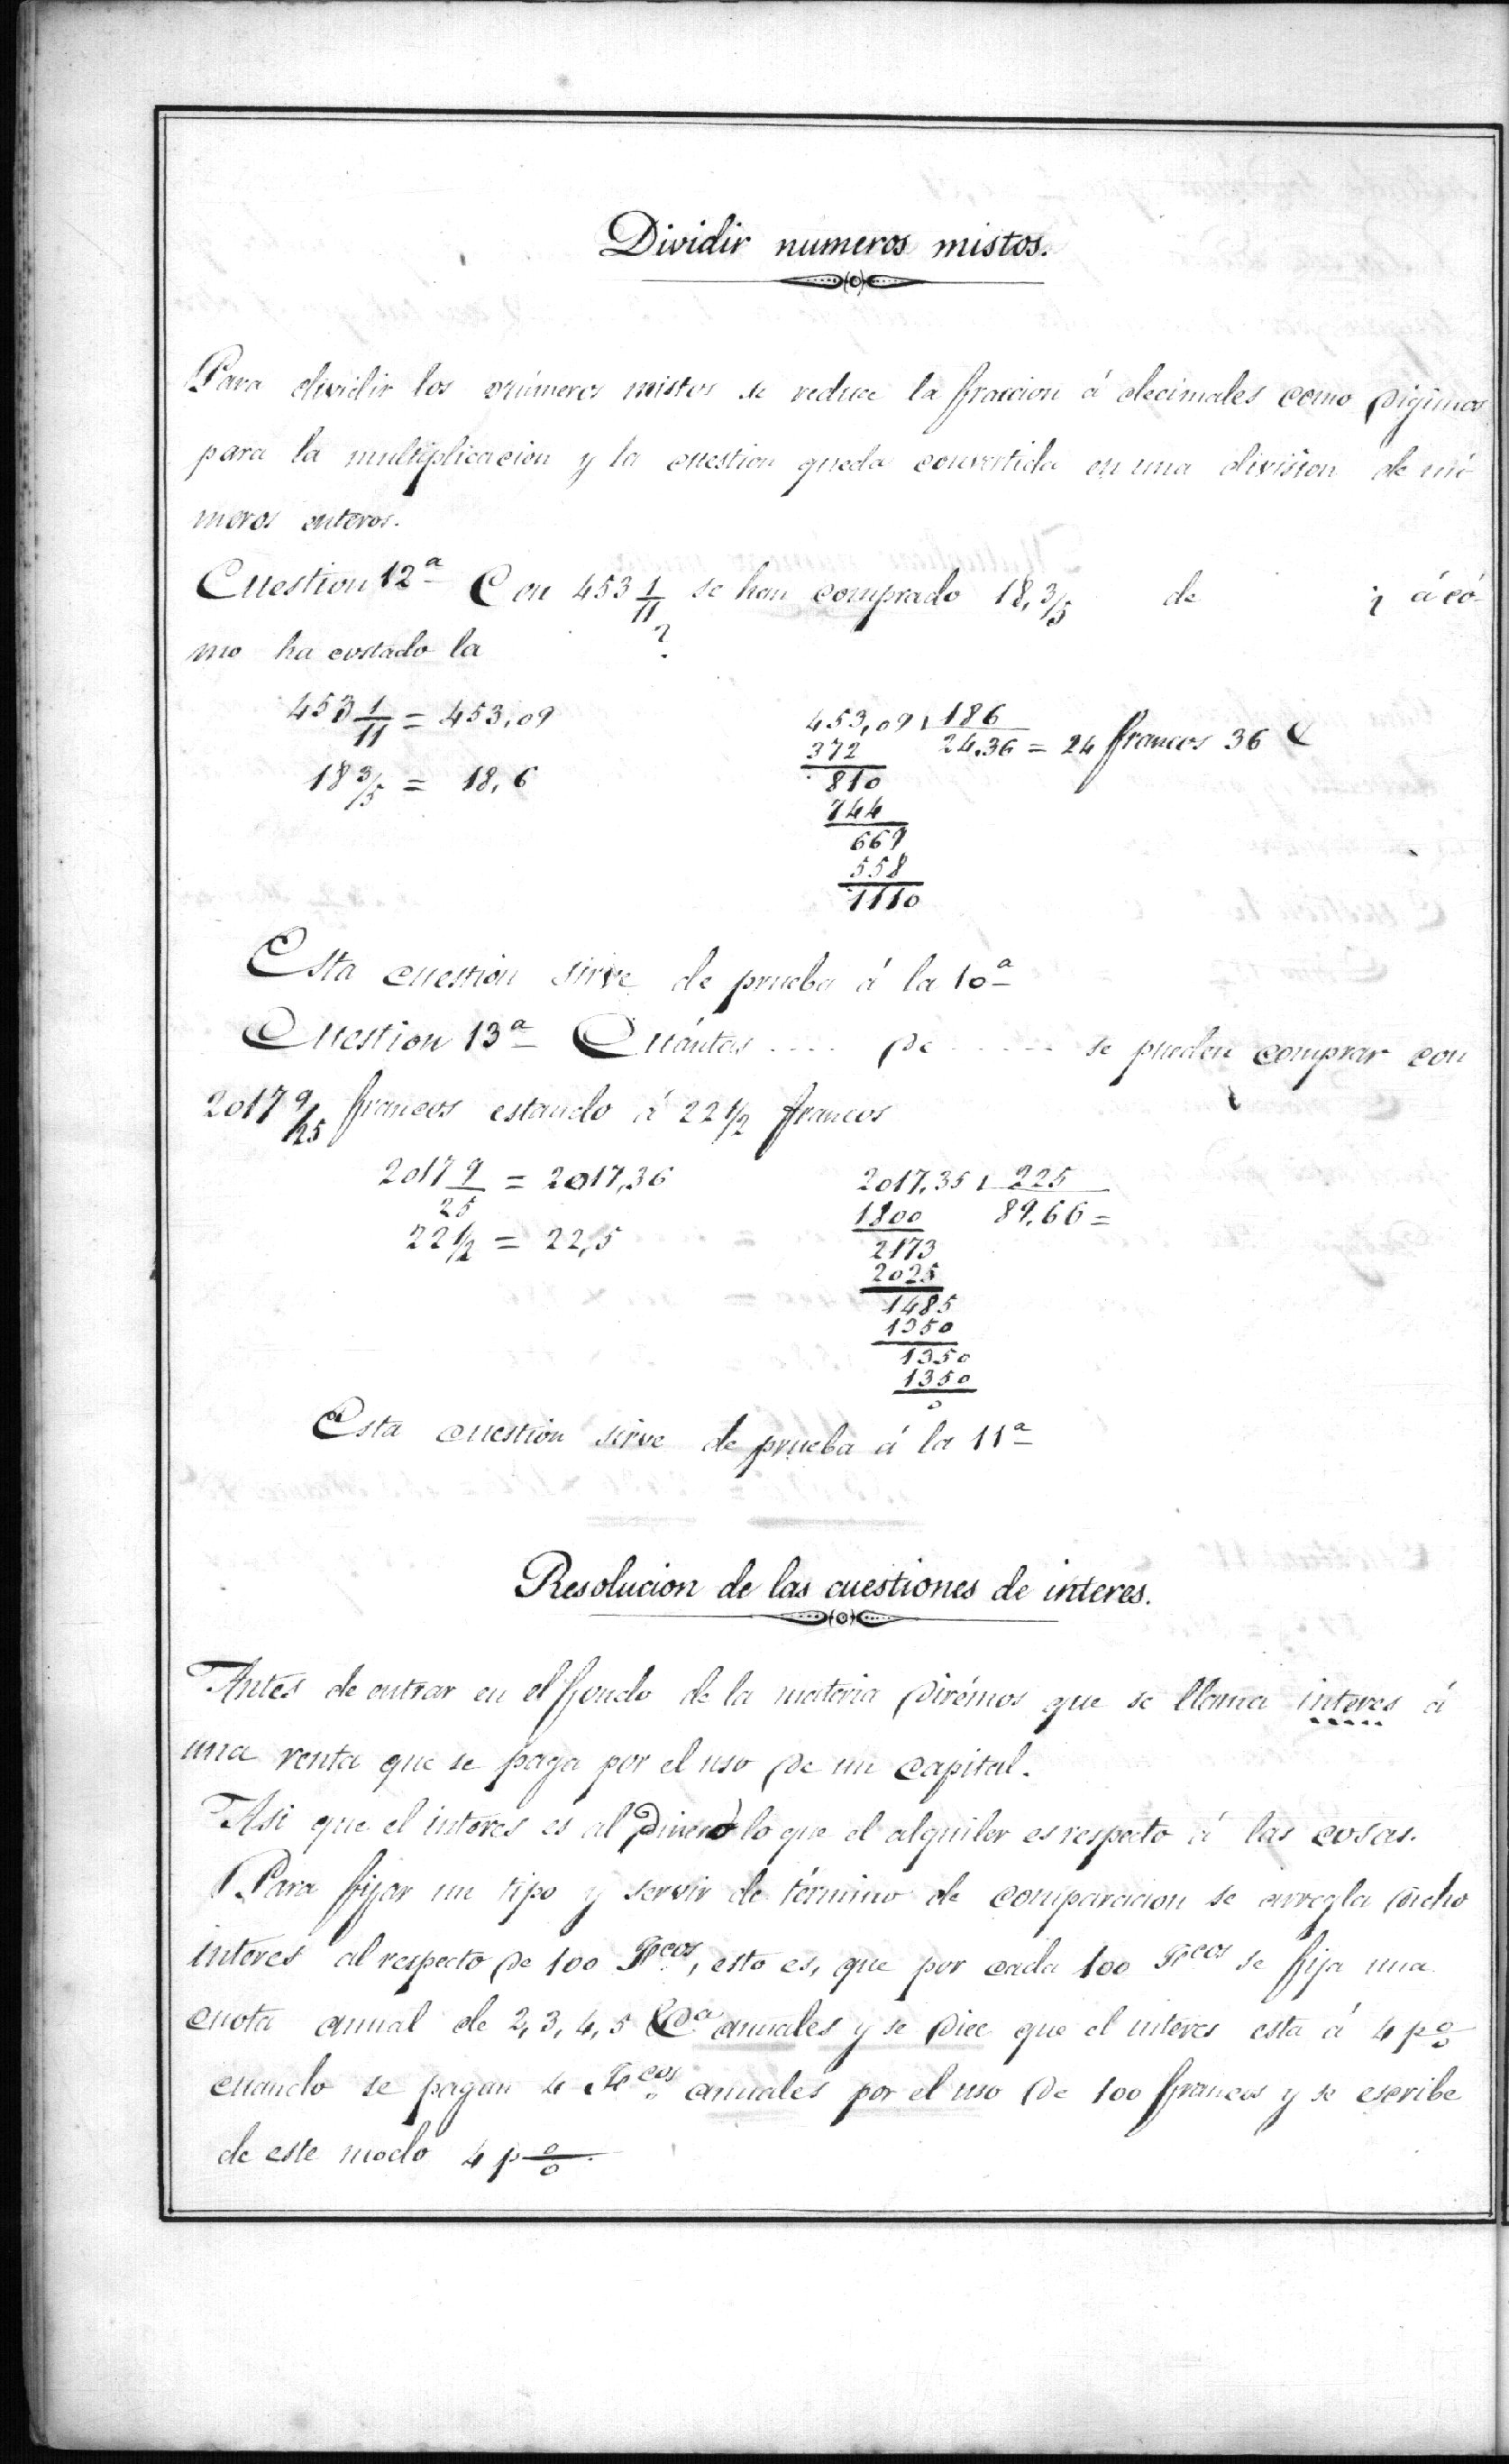 Dividir numeros mistos.
Para dividir los números mistos se reduce la fraccion á decimales como digimos
para la multiplicacion y la cuestion queda convertida en una division de nú-
meros enteros.
Cuestion 12ª Con 453 1/11 se han comprado 18, 3/5 de ¿ á có-
mo ha costado la ?
453 1/11 = 453,09
18 3/5 = 18,6
453,09 186
372 24,36 = 24 francos 36 C
810
744
669
558
1110
Esta cuestion sirve de prueba á la 10ª
Cuestion 13ª Cuántas .... de ..... se pueden comprar con
2017 9/25 francos estando á 22 1/2 francos
2017 9/25 = 2017,36
22 1/2 = 22,5
2017,35 225
1800 89,66 =
2173
2025
1485
1350
1350
1350
0
Esta cuestion sirve de prueba á la 11ª
Resolucion de las cuestiones de interes.
Antes de entrar en el fondo de la materia dirémos que se llama interes á
una renta que se paga por el uso de un capital.
Asi que el interes es al dinero lo que el alquiler es respecto á las cosas.
Para fijar un tipo y servir de término de comparacion se arregla dicho
interes al respecto de 100 Fcos, esto es, que por cada 100 Fcos se fija una
cuota annual de 2, 3, 4, 5 &ª anuales y se dice que el interes esta á 4 p o/o
cuando se pagan 4 Fcos anuales por el uso de 100 francos y se escribe
de este modo 4 p o/o